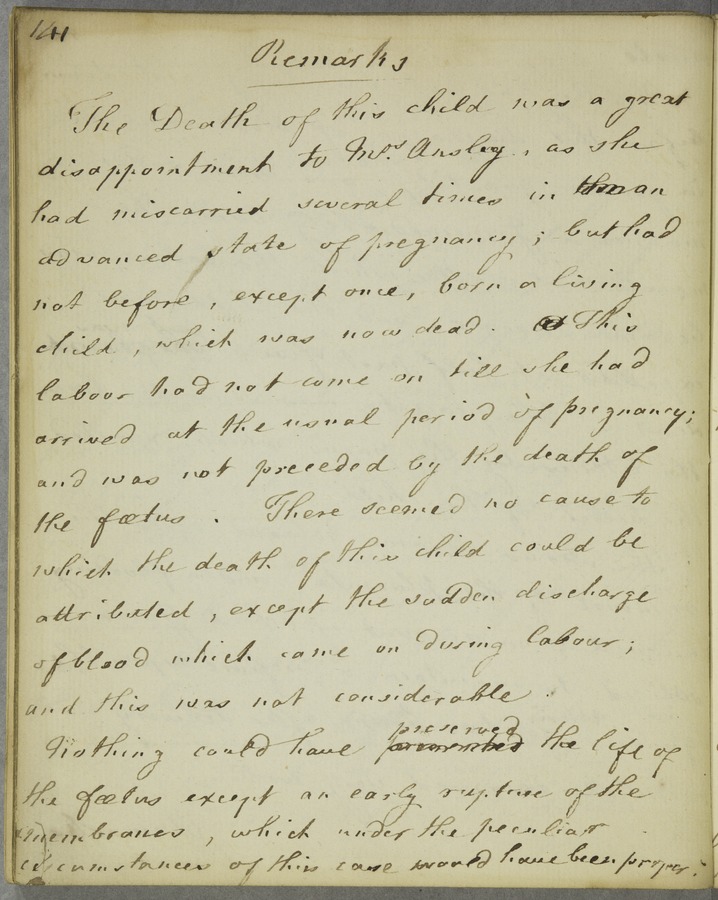 141
Remarks
The Death of this child was a great
disappointment to Mrs. Ansley, as she
had miscarried several times in an
advanced state of pregnancy; but had
not before, except once, born a living
child, which was now dead. This
labour had not come on till she had
arrived at the usual period of pregnancy;
and was not preceded by the death of
the fœtus. There seemed no cause to
which the death of this child could be
attributed, except the sudden discharge
of blood which came on during labour;
and this was not considerable.
preserved
Nothing could have prevented the life of
the fœtus except an early rupture of the
membranes, which under the peculiar
circumstances of this case would have been proper.